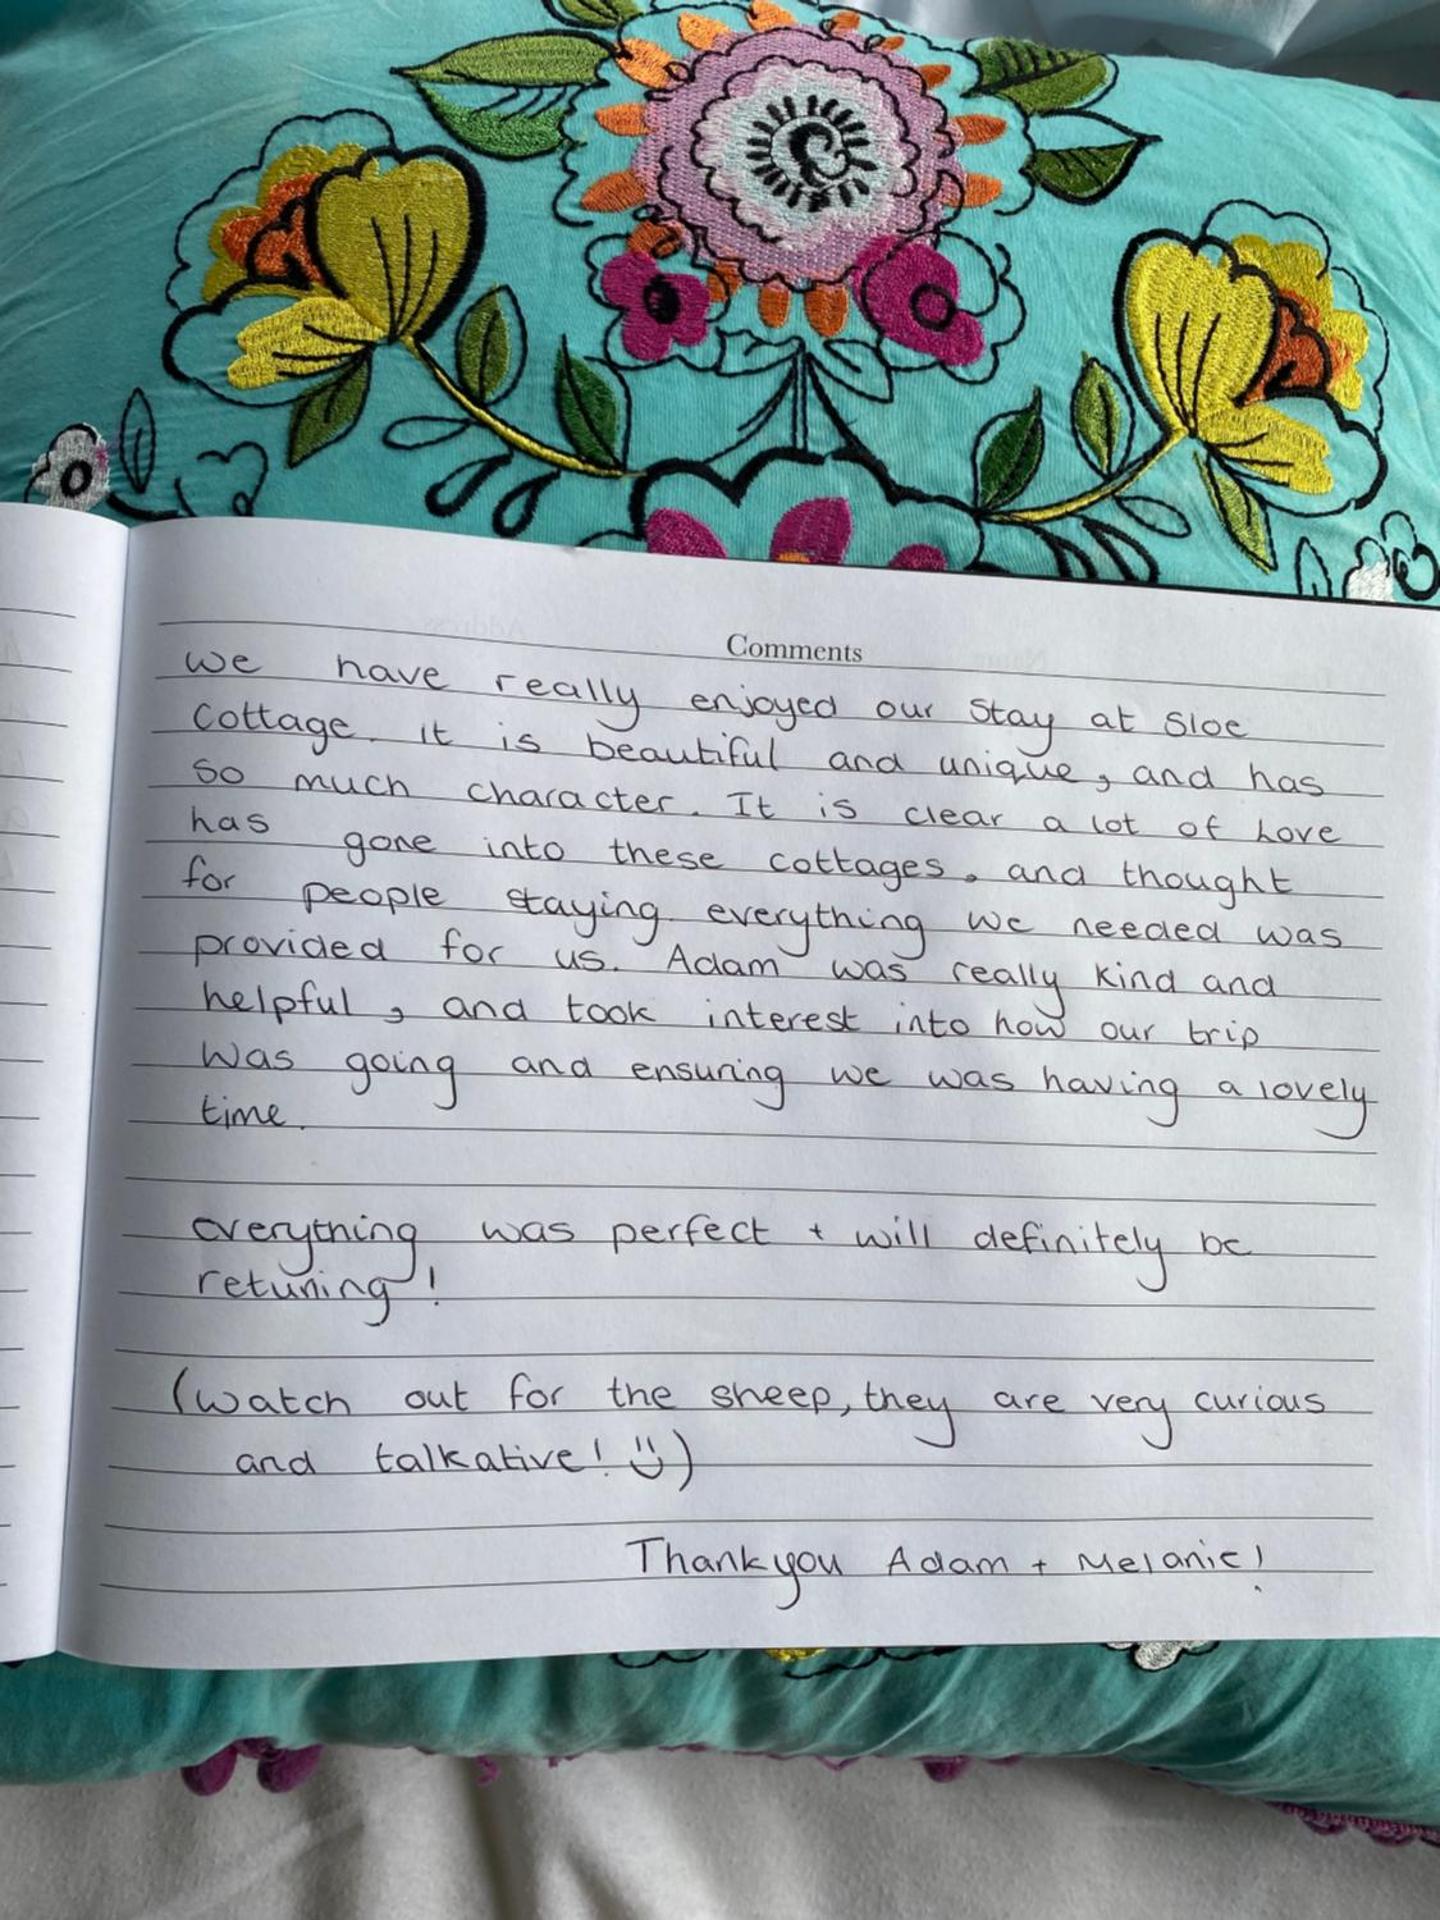 Comments
we have really enjoyed our stay at Sloe
cottage. it is beautiful and unique, and has
so much character. It is clear a lot of love
has gone into these cottages, and thought
for people staying. everything we needed was
provided for us. Adam was really kind and
helpful, and took interest into how our trip
was going and ensuring we was having a lovely
time.
everything was perfect + will definitely be
retuning!
(watch out for the sheep, they are very curious
and talkative! ☺)
Thankyou Adam + Melanie!